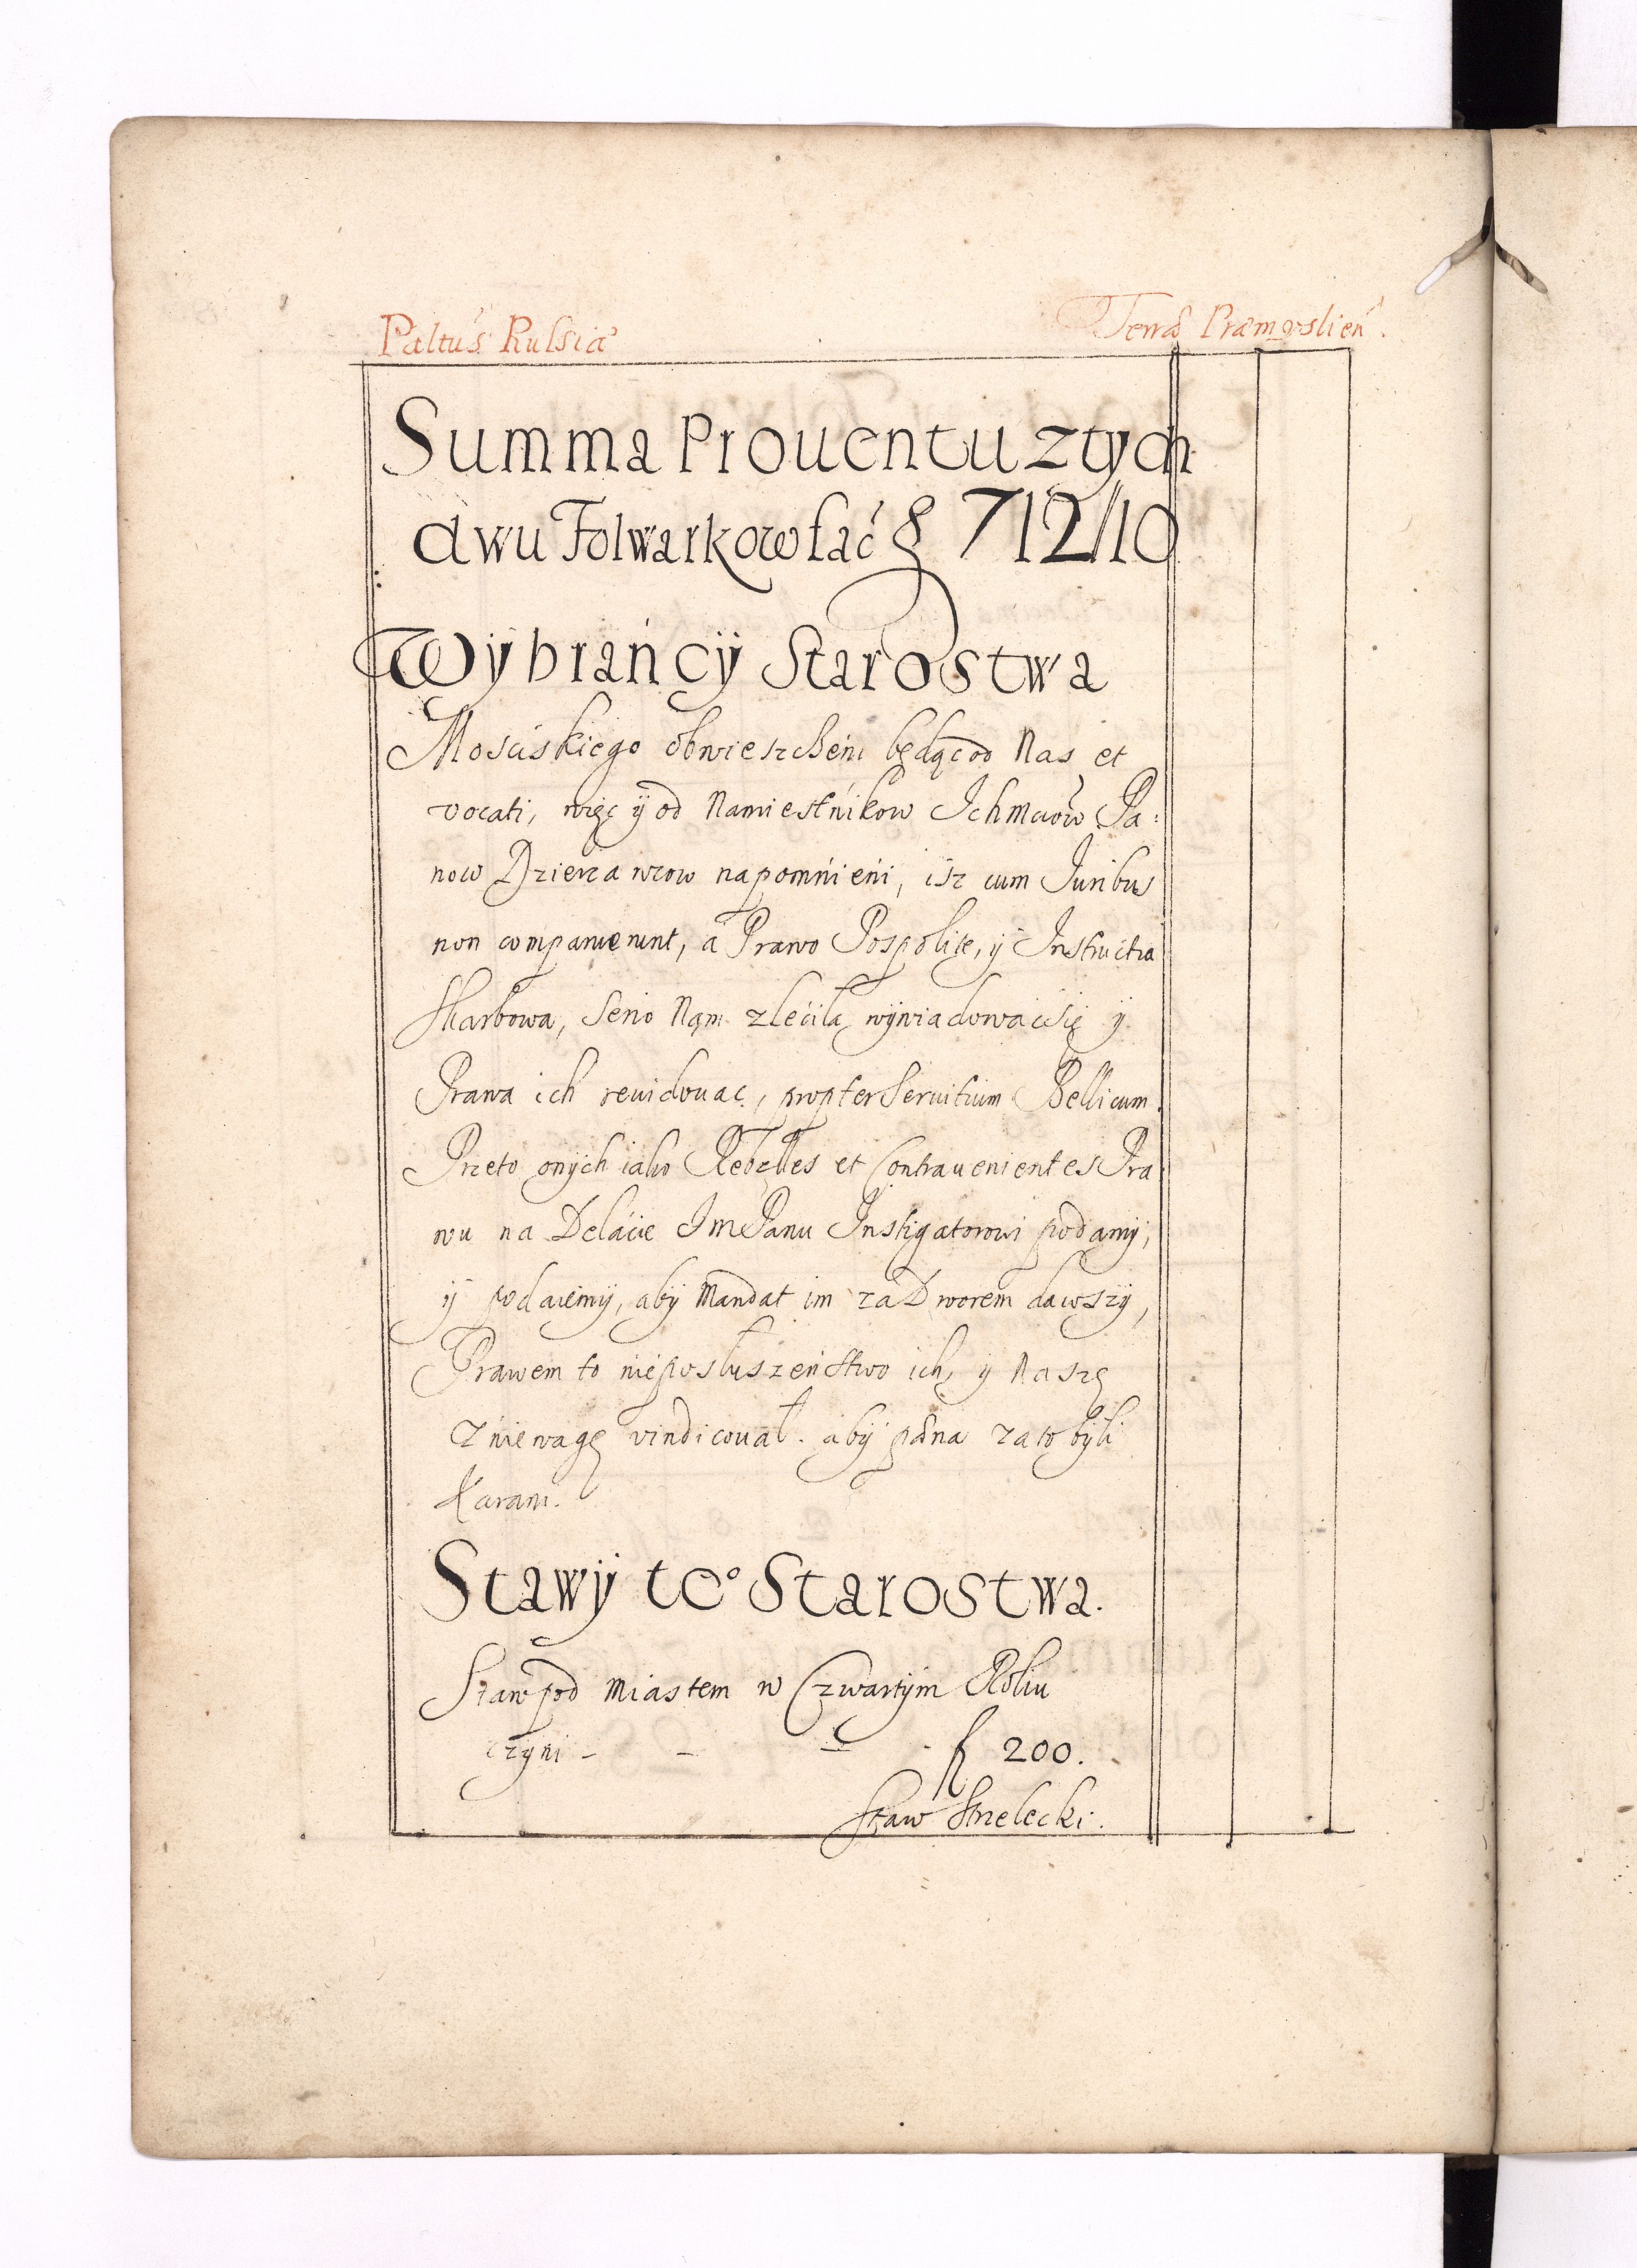 Paltus Russiæ
Terræ Præmyslień.
Summa Prouentu z tych
dwu Folwarkow fać f 712//10
Wÿbrańcÿ Starostwa
Mosciskiego obwieszczeni będąc od Nas et
vocati, więc ÿ od Namiestńikow Ichmciow Pa:
now Dzierzawcow napomńieńi, isz cum Iuribus
non comparuerunt, a Prawo Pospolite, ÿ Instructia
Skarbowa, serio Nąm zlećiła wywiadowacsię y
Prawa ich reuidouac, propter seruitium Bellicum.
Przeto onÿch iako Rebelles et Contrauenientes Pra
wu na Delácie Im Panu Instigatorowi podamÿ,
ÿ podaiemÿ, abÿ Mandat im za Dworem dawszÿ,
Prawem to nieposłuszeństwo ich, y Naszę
zniewagę vindicował. abÿ pœna za to bÿli
Karani.
Stawÿ te° Starostwa.
Staw pod Miastem w Czwartÿm Roku
czyni - - - f 200.
Staw Strzelecki.